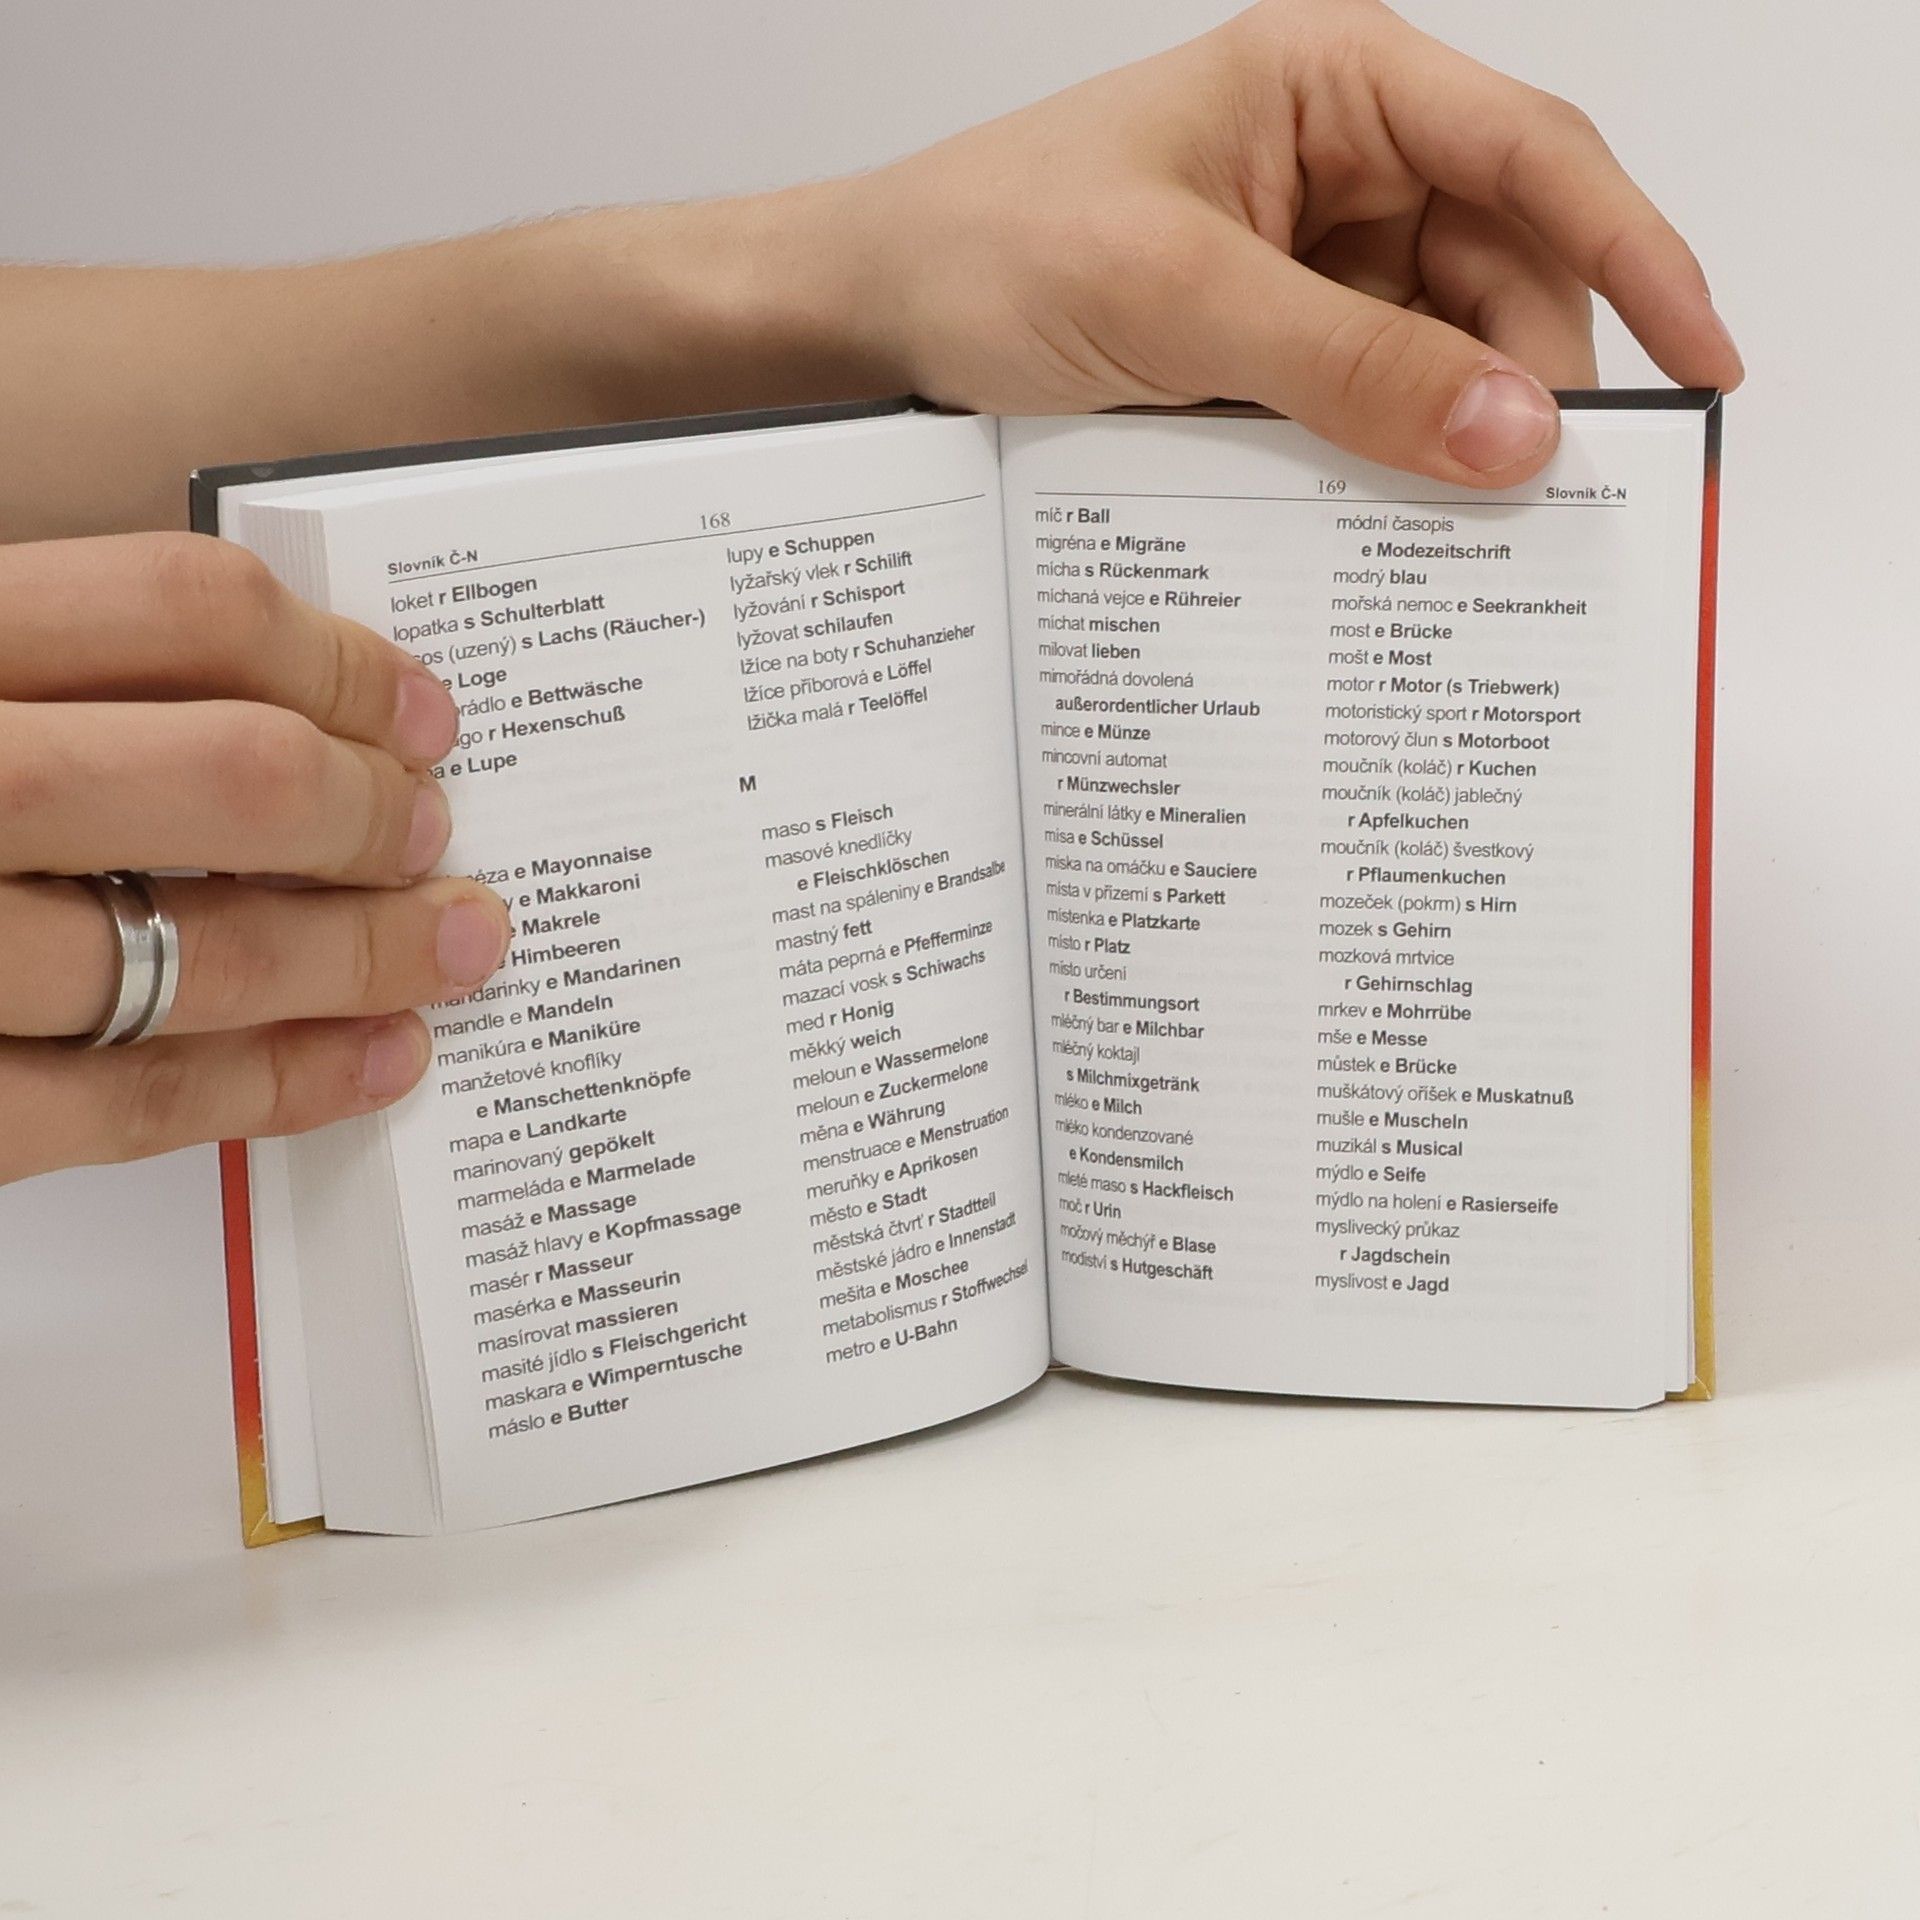 Slovník Č-N
168
loket r Ellbogen
lopatka s Schulterblatt
(uzený) s Lachs (Räucher-)
e Loge
e Bettwäsche
r Hexenschuß
e Lupe
lupy e Schuppen
lyžařský vlek r Schilift
lyžování r Schisport
lyžovat schilaufen
lžíce na boty r Schuhanzieher
lžíce příborová e Löffel
lžička malá r Teelöffel
M
e Mayonnaise
e Makkaroni
e Makrele
Himbeeren
e Mandarinen
mandle e Mandeln
manikúra e Maniküre
manžetové knoflíky
e Manschettenknöpfe
mapa e Landkarte
marinovaný gepökelt
marmeláda e Marmelade
masáž e Massage
masáž hlavy e Kopfmassage
masér r Masseur
masérka e Masseurin
masírovat massieren
masité jídlo s Fleischgericht
maskara e Wimperntusche
máslo e Butter
maso s Fleisch
masové knedlíčky
e Fleischklöschen
mast na spáleniny e Brandsalbe
mastný fett
máta peprná e Pfefferminze
mazací vosk s Schiwachs
med r Honig
měkký weich
meloun e Wassermelone
meloun e Zuckermelone
měna e Währung
menstruace e Menstruation
meruňky e Aprikosen
město e Stadt
městská čtvrť r Stadtteil
městské jádro e Innenstadt
mešita e Moschee
metabolismus r Stoffwechsel
metro e U-Bahn
169
Slovník Č-N
míč r Ball
migréna e Migräne
mícha s Rückenmark
míchaná vejce e Rühreier
míchat mischen
milovat lieben
mimořádná dovolená
außerordentlicher Urlaub
mince e Münze
mincovní automat
r Münzwechsler
minerální látky e Mineralien
mísa e Schüssel
miska na omáčku e Sauciere
místa v přízemí s Parkett
místenka e Platzkarte
místo r Platz
místo určení
r Bestimmungsort
mléčný bar e Milchbar
mléčný koktajl
s Milchmixgetränk
mléko e Milch
mléko kondenzované
e Kondensmilch
mleté maso s Hackfleisch
moč r Urin
močový měchýř e Blase
modiství s Hutgeschäft
módní časopis
e Modezeitschrift
modrý blau
mořská nemoc e Seekrankheit
most e Brücke
mošt e Most
motor r Motor (s Triebwerk)
motoristický sport r Motorsport
motorový člun s Motorboot
moučník (koláč) r Kuchen
moučník (koláč) jablečný
r Apfelkuchen
moučník (koláč) švestkový
r Pflaumenkuchen
mozeček (pokrm) s Hirn
mozek s Gehirn
mozková mrtvice
r Gehirnschlag
mrkev e Mohrrübe
mše e Messe
můstek e Brücke
muškátový oříšek e Muskatnuß
mušle e Muscheln
muzikál s Musical
mýdlo e Seife
mýdlo na holení e Rasierseife
myslivecký průkaz
r Jagdschein
myslivost e Jagd